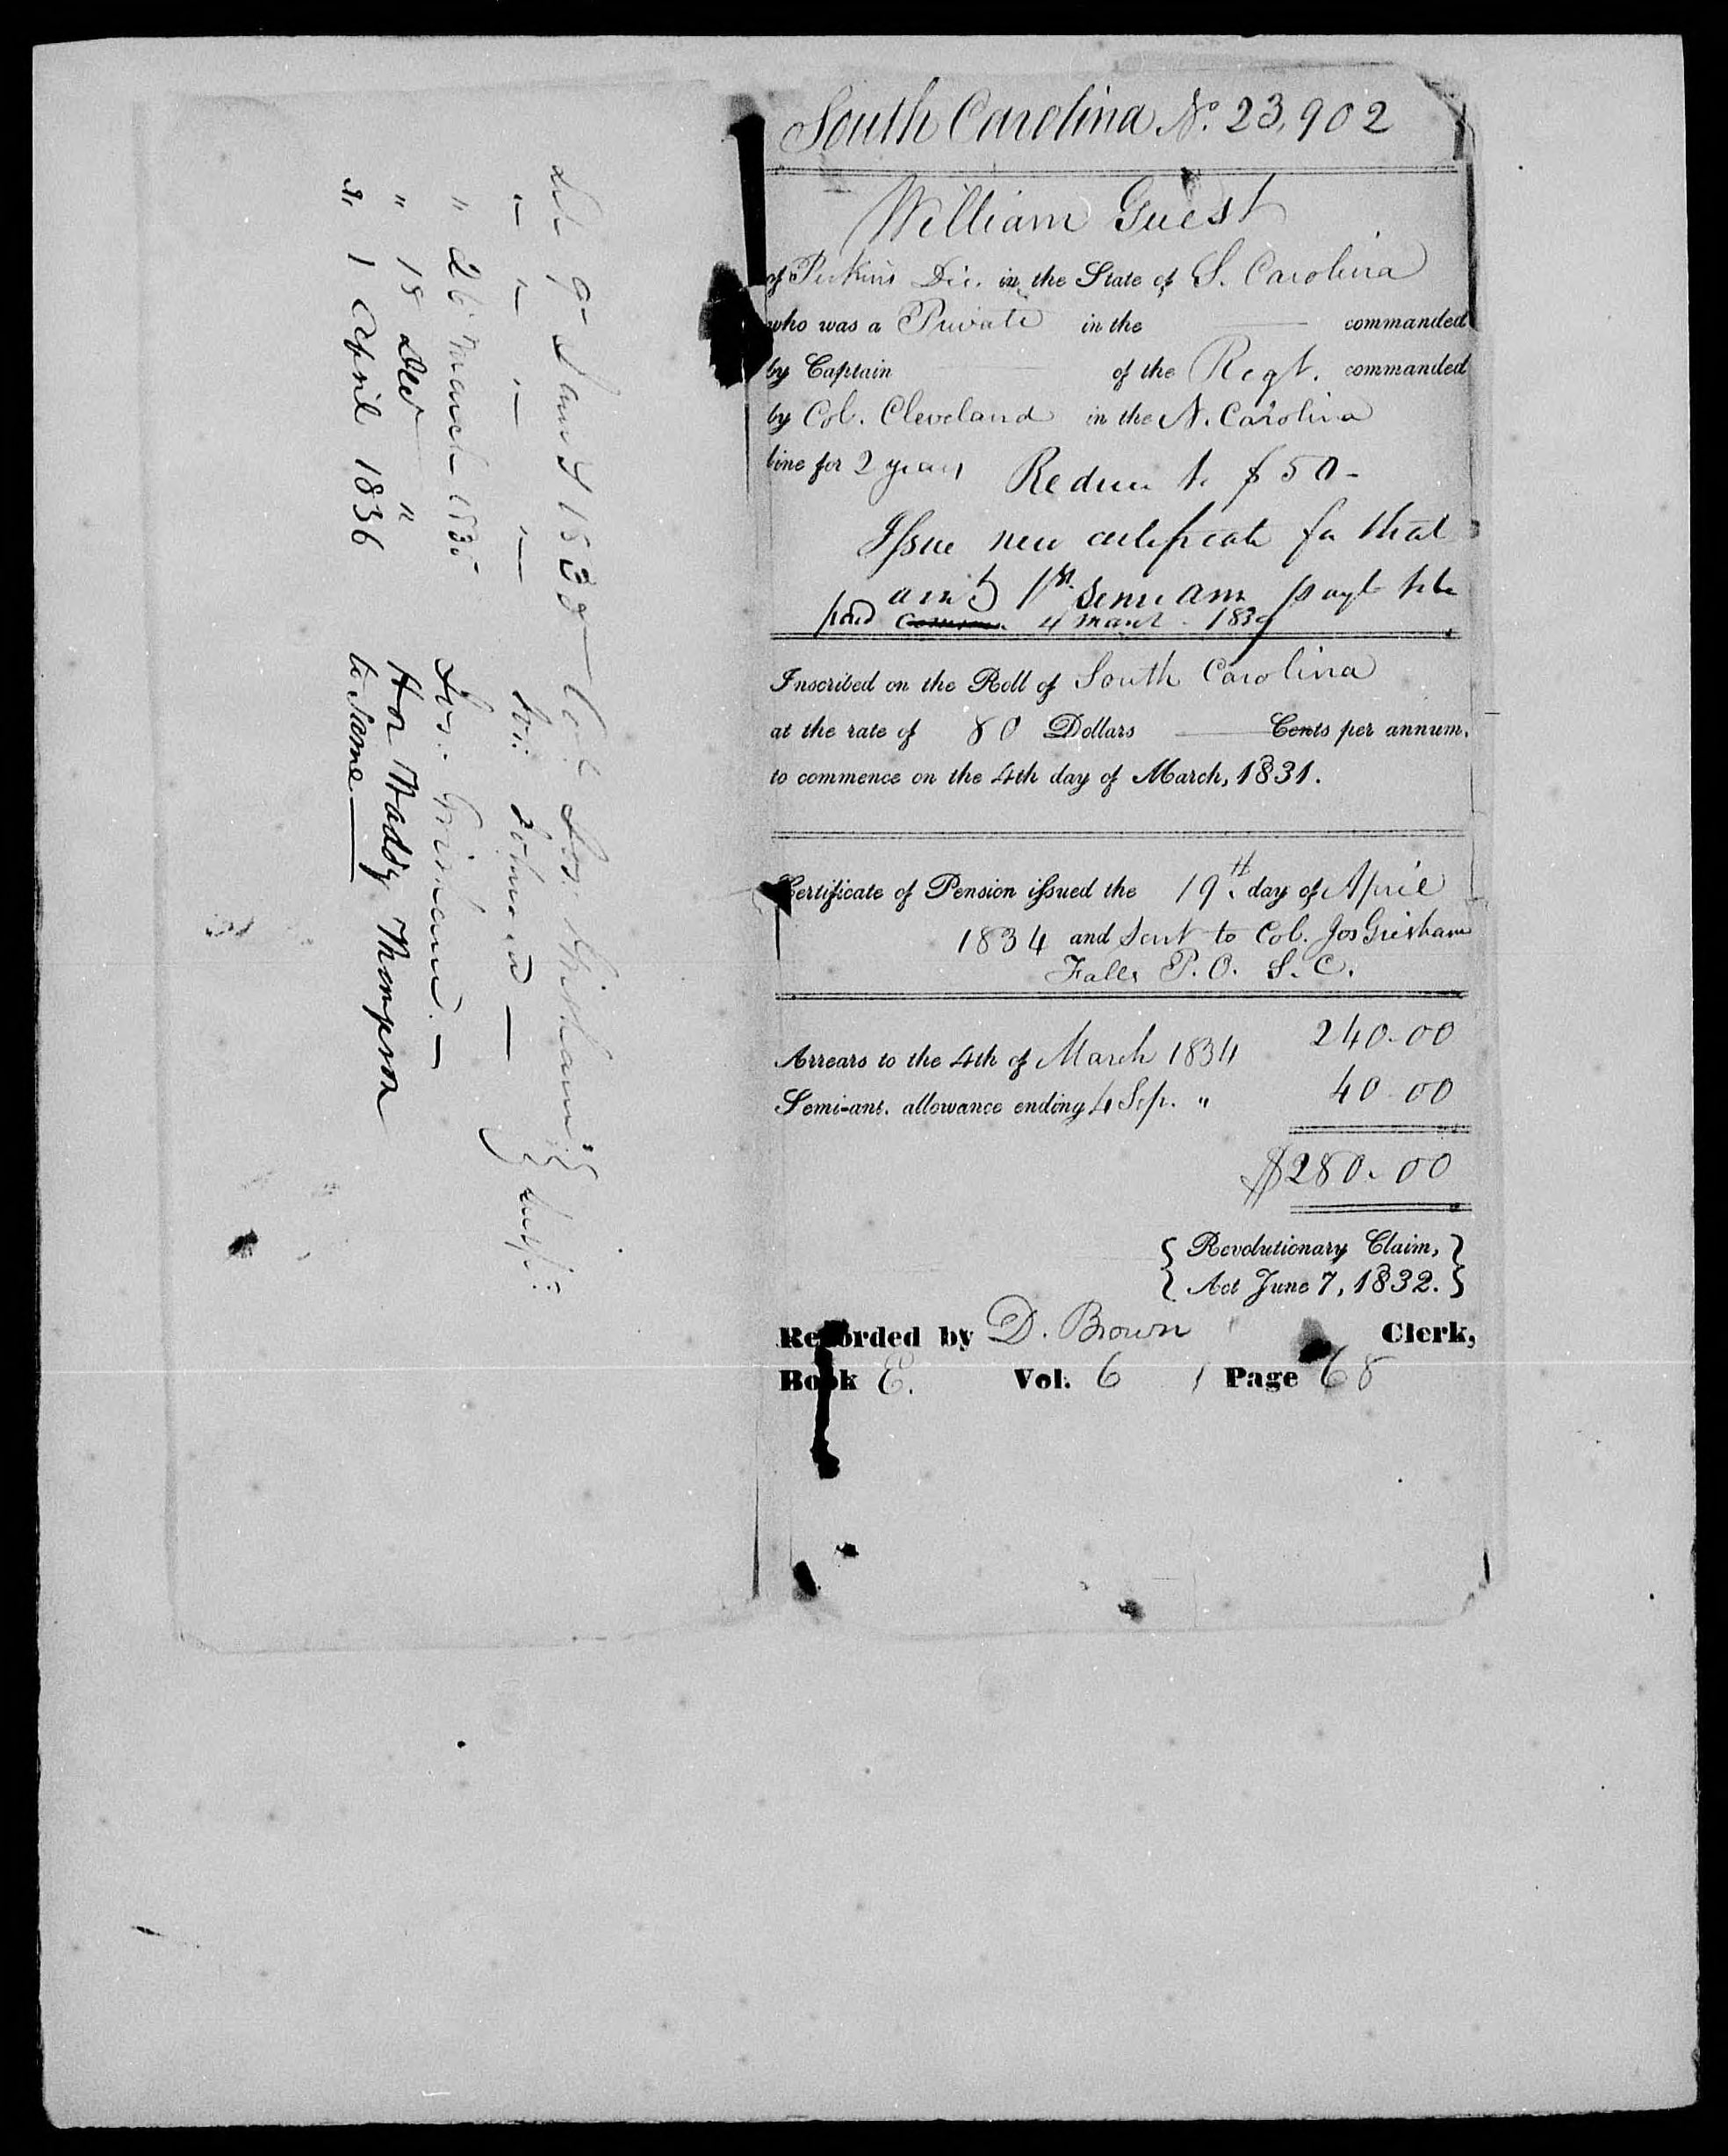 South Carolina No. 23,902
William Guest
of Pickins Dis. in the State of S. Carolina
who was a Private in the commanded
by Captain of the Regt. commanded
by Col. Cleveland in the N. Carolina
line for 2 years Reduce to $50-
Issue new certificate for that
amt 1st semi ann payt to be
paid 4 March 183
Inscribed on the Roll of South Carolina
at the rate of 80 Dollars Cents per annum,
to commence on the 4th day of March, 1831.
Certificate of Pension issued the 19th. day of April
1834 and sent to Col. Jos Grisham
Falls P.O. S.C.
Arrears to the 4th of March 1834 240.00
Semi-anl. allowance ending 4 Sep. " 40.00
$280.00
Revolutionary Claim,
Act June 7, 1832.
Recorded by D. Brown Clerk,
Book E. Vol. 6 Page 68
9 Jany 183 Col Jos. Grisham
" 26 March 1835 Jos. Grisham
" 18 Decr " Hon Waddy Thompson
1 April 1836 to same